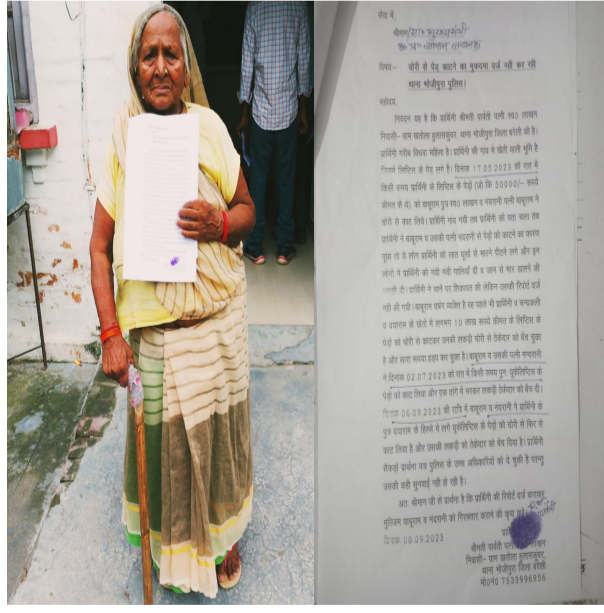 सेवा में,
श्रीमान/
विषय:- चोरी से पेड़ काटने का मुकदमा दर्ज नही कर रही
थाना भोजीपुरा पुलिस।
महोदय,
निवेदन यह है कि प्रार्थिनी श्रीमती पार्वती पत्नी स्व0 लाखन
निवासी- ग्राम खतोला हुलासकुवर, थाना भोजीपुरा जिला बरेली की है।
प्रार्थिनी गरीब विधवा महिला है। प्रार्थिनी की गांव में खेती वाली भूमि है
जिसमें लिप्टिस के पेड़ लगे है। दिनांक 17.05.2023 को रात में
किसी समय प्रार्थिनी के लिप्टिस के पेड़ो (जो कि 50000/- रूपये
कीमत के थे), को बाबूराम पुत्र स्व0 लाखन व नंदरानी पत्नी बाबूराम ने
चोरी से काट लिये। प्रार्थिनी गांव गयी तब प्रार्थिनी को पता चला तब
प्रार्थिनी ने बाबूराम व उसकी पत्नी नंदरानी से पेड़ो को काटने का कारण
पूछा तो ये लोग प्रार्थिनी को लात घूसो से मारने पीटने लगे और इन
लोगो ने प्रार्थिनी को गंदी गंदी गालियाँ दी व जान से मार डालने की
धमकी दी। प्रार्थिनी ने थाने पर शिकायत की लेकिन उसकी रिपोर्ट दर्ज
नही की गयी। बाबूराम दबंग व्यक्ति है वह पहले भी प्रार्थिनी व चन्द्रकली
व दयाराम के खेतो में लगभग 10 लाख रूपये कीमत के लिप्टिस के
पेड़ो को चोरी से काटकर उनकी लकड़ी चोरी से ठेकेदार को बेच चुका
है और सारा रूपया हड़प कर चुका है। बाबूराम व उसकी पत्नी नन्दरानी
ने दिनांक 02.07.2023 को रात में किसी समय पुनः यूकेलिप्टिस के
पेड़ो को काट लिया और एक तांगे में भरकर लकड़ी ठेकेदार को बेंच दी।
दिनांक 06.09.2023 की रात्रि में बाबूराम व नंदरानी ने प्रार्थिनी के
पुत्र दयाराम के हिस्से में लगे यूकेलिप्टिस के पेड़ो को चोरी से फिर से
काट लिया है और उसकी लकड़ी को ठेकेदार को बेंच दिया है। प्रार्थिनी
सैकड़ो प्रार्थना पत्र पुलिस के उच्च अधिकारियो को दे चुकी है परन्तु
उसकी कही सुनवाई नही हो रही है।
अतः श्रीमान जी से प्रार्थना है कि प्रार्थिनी की रिपोर्ट दर्ज कराकर
मुल्जिम बाबूराम व नंदरानी को गिरफ्तार कराने की कृपा करें
दिनांक 08.09.2023
श्रीमती पार्वती पत्नी लाखन
निवासी- ग्राम खतोला हुलासकुवर,
थाना भोजीपुरा जिला बरेली
मो0नं0 7533996956